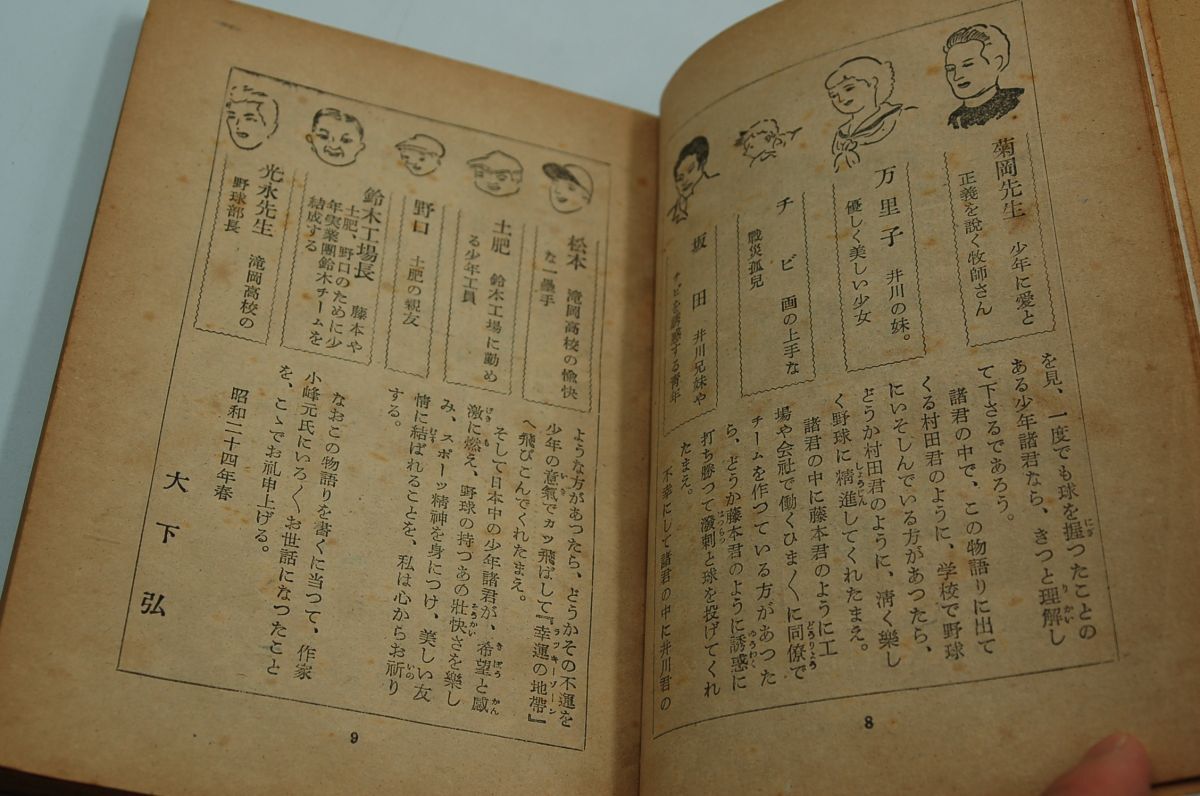 菊岡先生　少年に愛と
正義を説く牧師さん
万里子　井川の妹。
優しく美しい少女
チビ　画の上手な
戰災孤兒
坂田　井川兄妹や
チビを誘惑する青年
を見、一度でも球を握つたことの
ある少年諸君なら、きつと理解し
て下さるであろう。
諸君の中で、この物語りに出て
くる村田君のように、学校で野球
にいそしんでいる方があつたら、
どうか村田君のように、淸く樂し
く野球に精進してくれたまえ。
諸君の中に藤本君のように工
場や会社で働くひま〱に同僚で
チームを作つている方があつた
ら、どうか藤本君のように誘惑に
打ち勝つて潑剌と球を投げてくれ
たまえ。
不幸にして諸君の中に井川君の
8
松本　滝岡高校の愉快
な一壘手
土肥　鈴木工場に勤め
る少年工員
野口　土肥の親友
鈴木工場長　藤本や
土肥、野口のために少
年実業團鈴木チームを
結成する
光水先生　滝岡高校の
野球部長
ような方があつたら、どうかその不運を
少年の意氣でカッ飛ばして『幸運の地帶』
へ飛びこんでくれたまえ。
そして日本中の少年諸君が、希望と感
激に燃え、野球の持つあの壯快さを樂し
み、スポーツ精神を身につけ、美しい友
情に結ばれることを、私は心からお祈り
する。
なおこの物語りを書くに当つて、作家
小峰元氏にいろ〱お世話になつたこと
を、こゝでお礼申上げる。
昭和二十四年春
大下弘
9